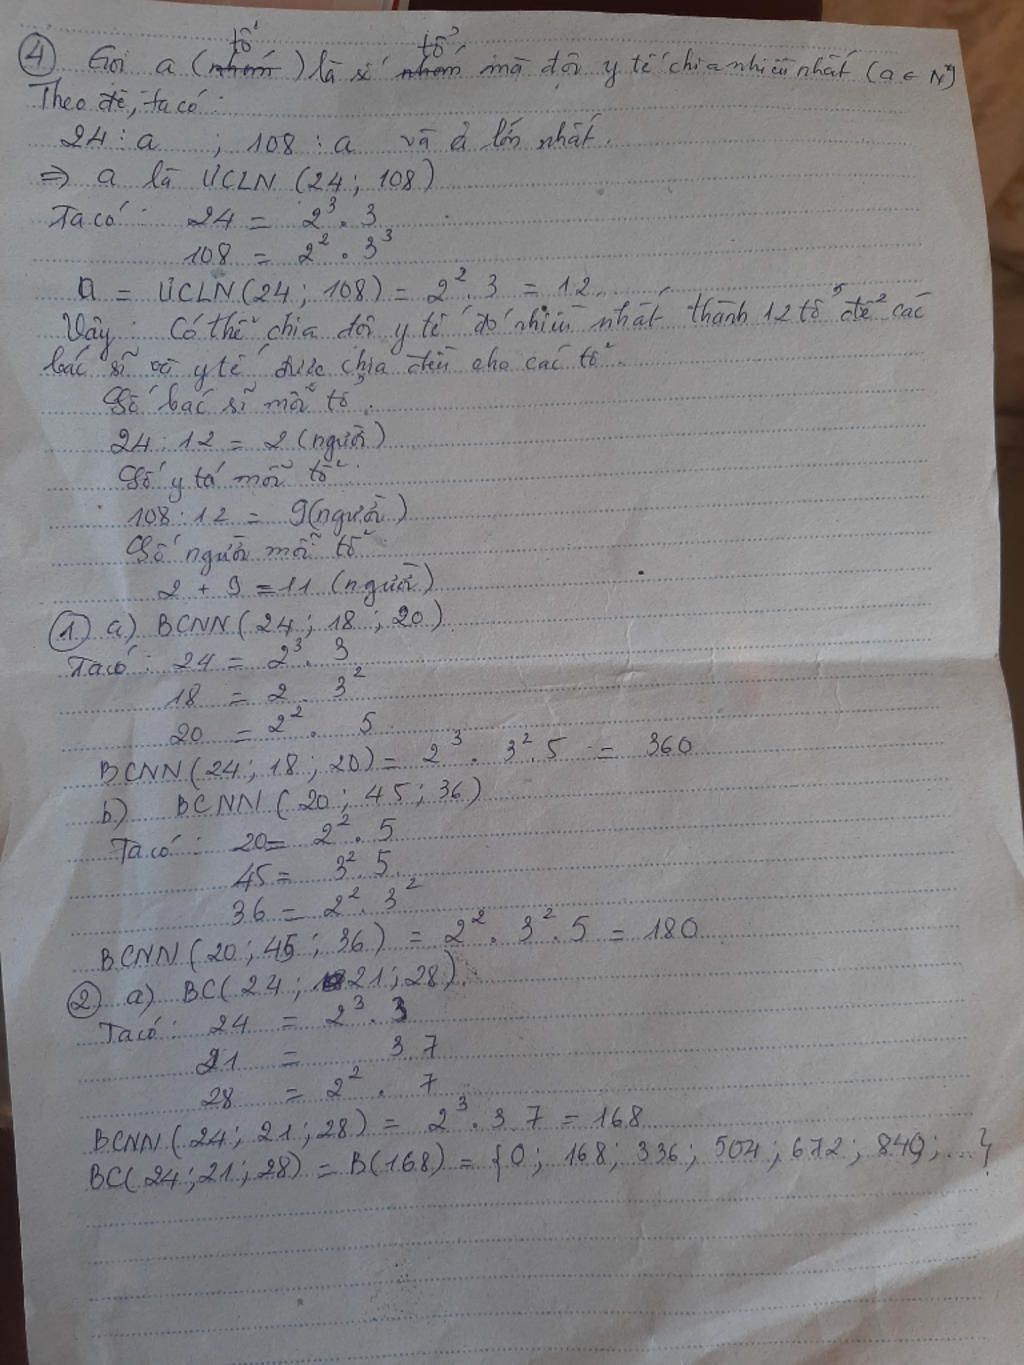 ④ Gọi a (tổ) là số tổ mà đội y tế chia nhiều nhất (a ∈ N*)
Theo đề, ta có:
24 : a ; 108 : a và a lớn nhất.
⇒ a là ƯCLN (24; 108)
Ta có: 24 = 2³ . 3
108 = 2² . 3³
a = ƯCLN (24; 108) = 2² . 3 = 12.
Vậy: Có thể chia đội y tế đó nhiều nhất thành 12 tổ để các
bác sĩ và y tế được chia đều cho các tổ.
Số bác sĩ mỗi tổ.
24 : 12 = 2 (người)
Số y tá mỗi tổ:
108 : 12 = 9 (người)
Số người mỗi tổ
2 + 9 = 11 (người)
① a) BCNN (24; 18; 20)
Ta có: 24 = 2³ . 3
18 = 2 . 3²
20 = 2² . 5
BCNN (24; 18; 20) = 2³ . 3² . 5 = 360
b) BCNN (20; 45; 36)
Ta có: 20 = 2² . 5
45 = 3² . 5
36 = 2² . 3²
BCNN (20; 45; 36) = 2² . 3² . 5 = 180
② a) BC (24; 21; 28).
Ta có: 24 = 2³ . 3
21 = 3 . 7
28 = 2² . 7
BCNN (24; 21; 28) = 2³ . 3 . 7 = 168
BC (24; 21; 28) = B(168) = {0; 168; 336; 504; 672; 840; ...}